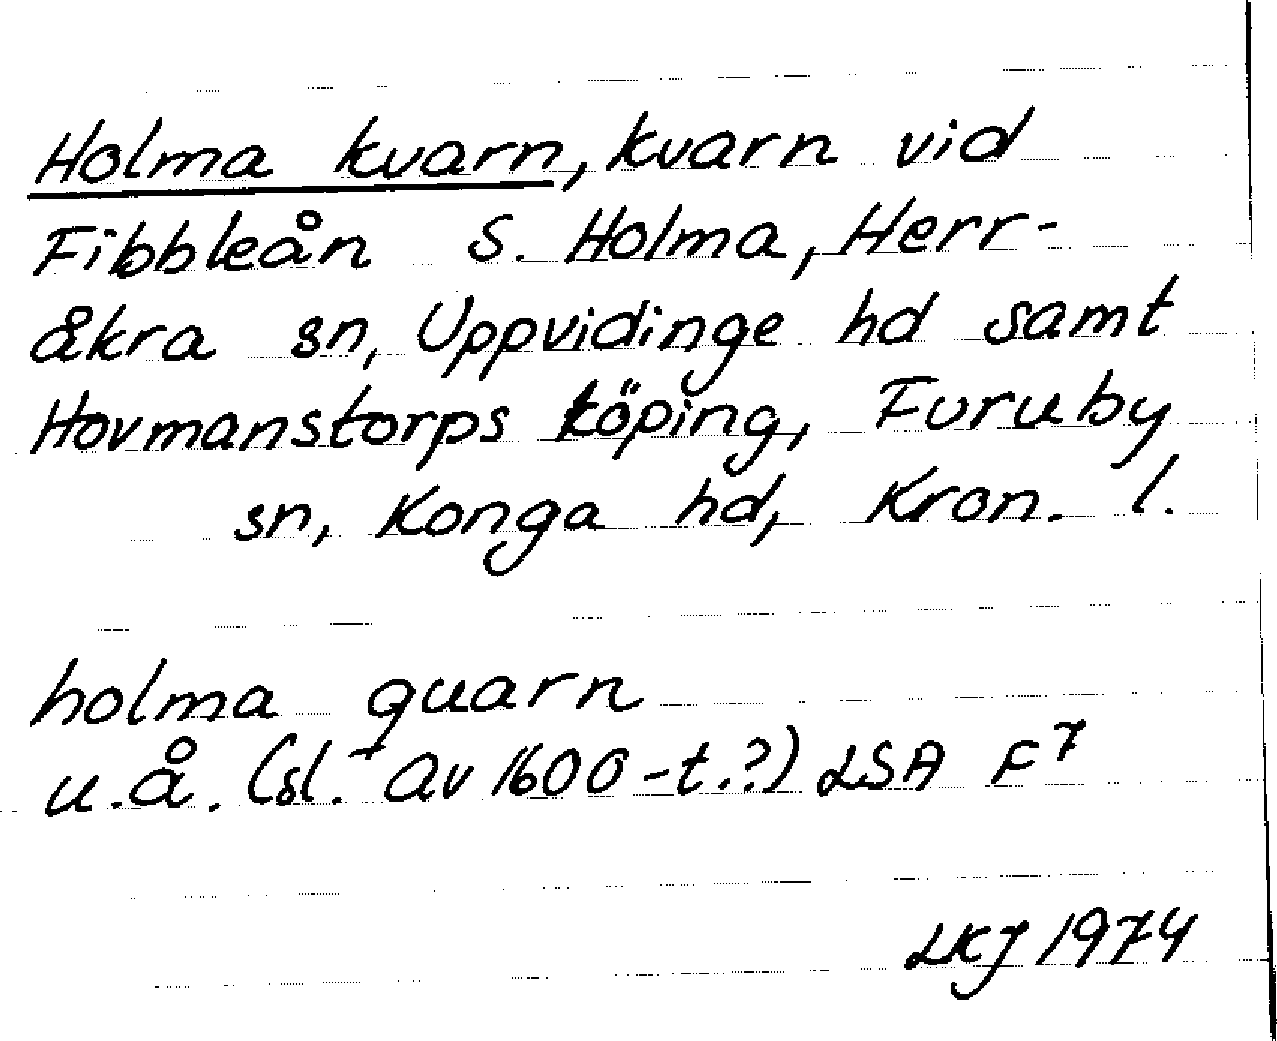 Holma kvarn, kvarn vid
Fibbleån S. Holma, Herr-
åkra sn, Uppvidinge hd samt
Hovmanstorps köping, Furuby
sn, Konga hd, Kron. l.
holma quarn
u.å. (sl. av 1600-t.?) LSA F7
LKJ 1974